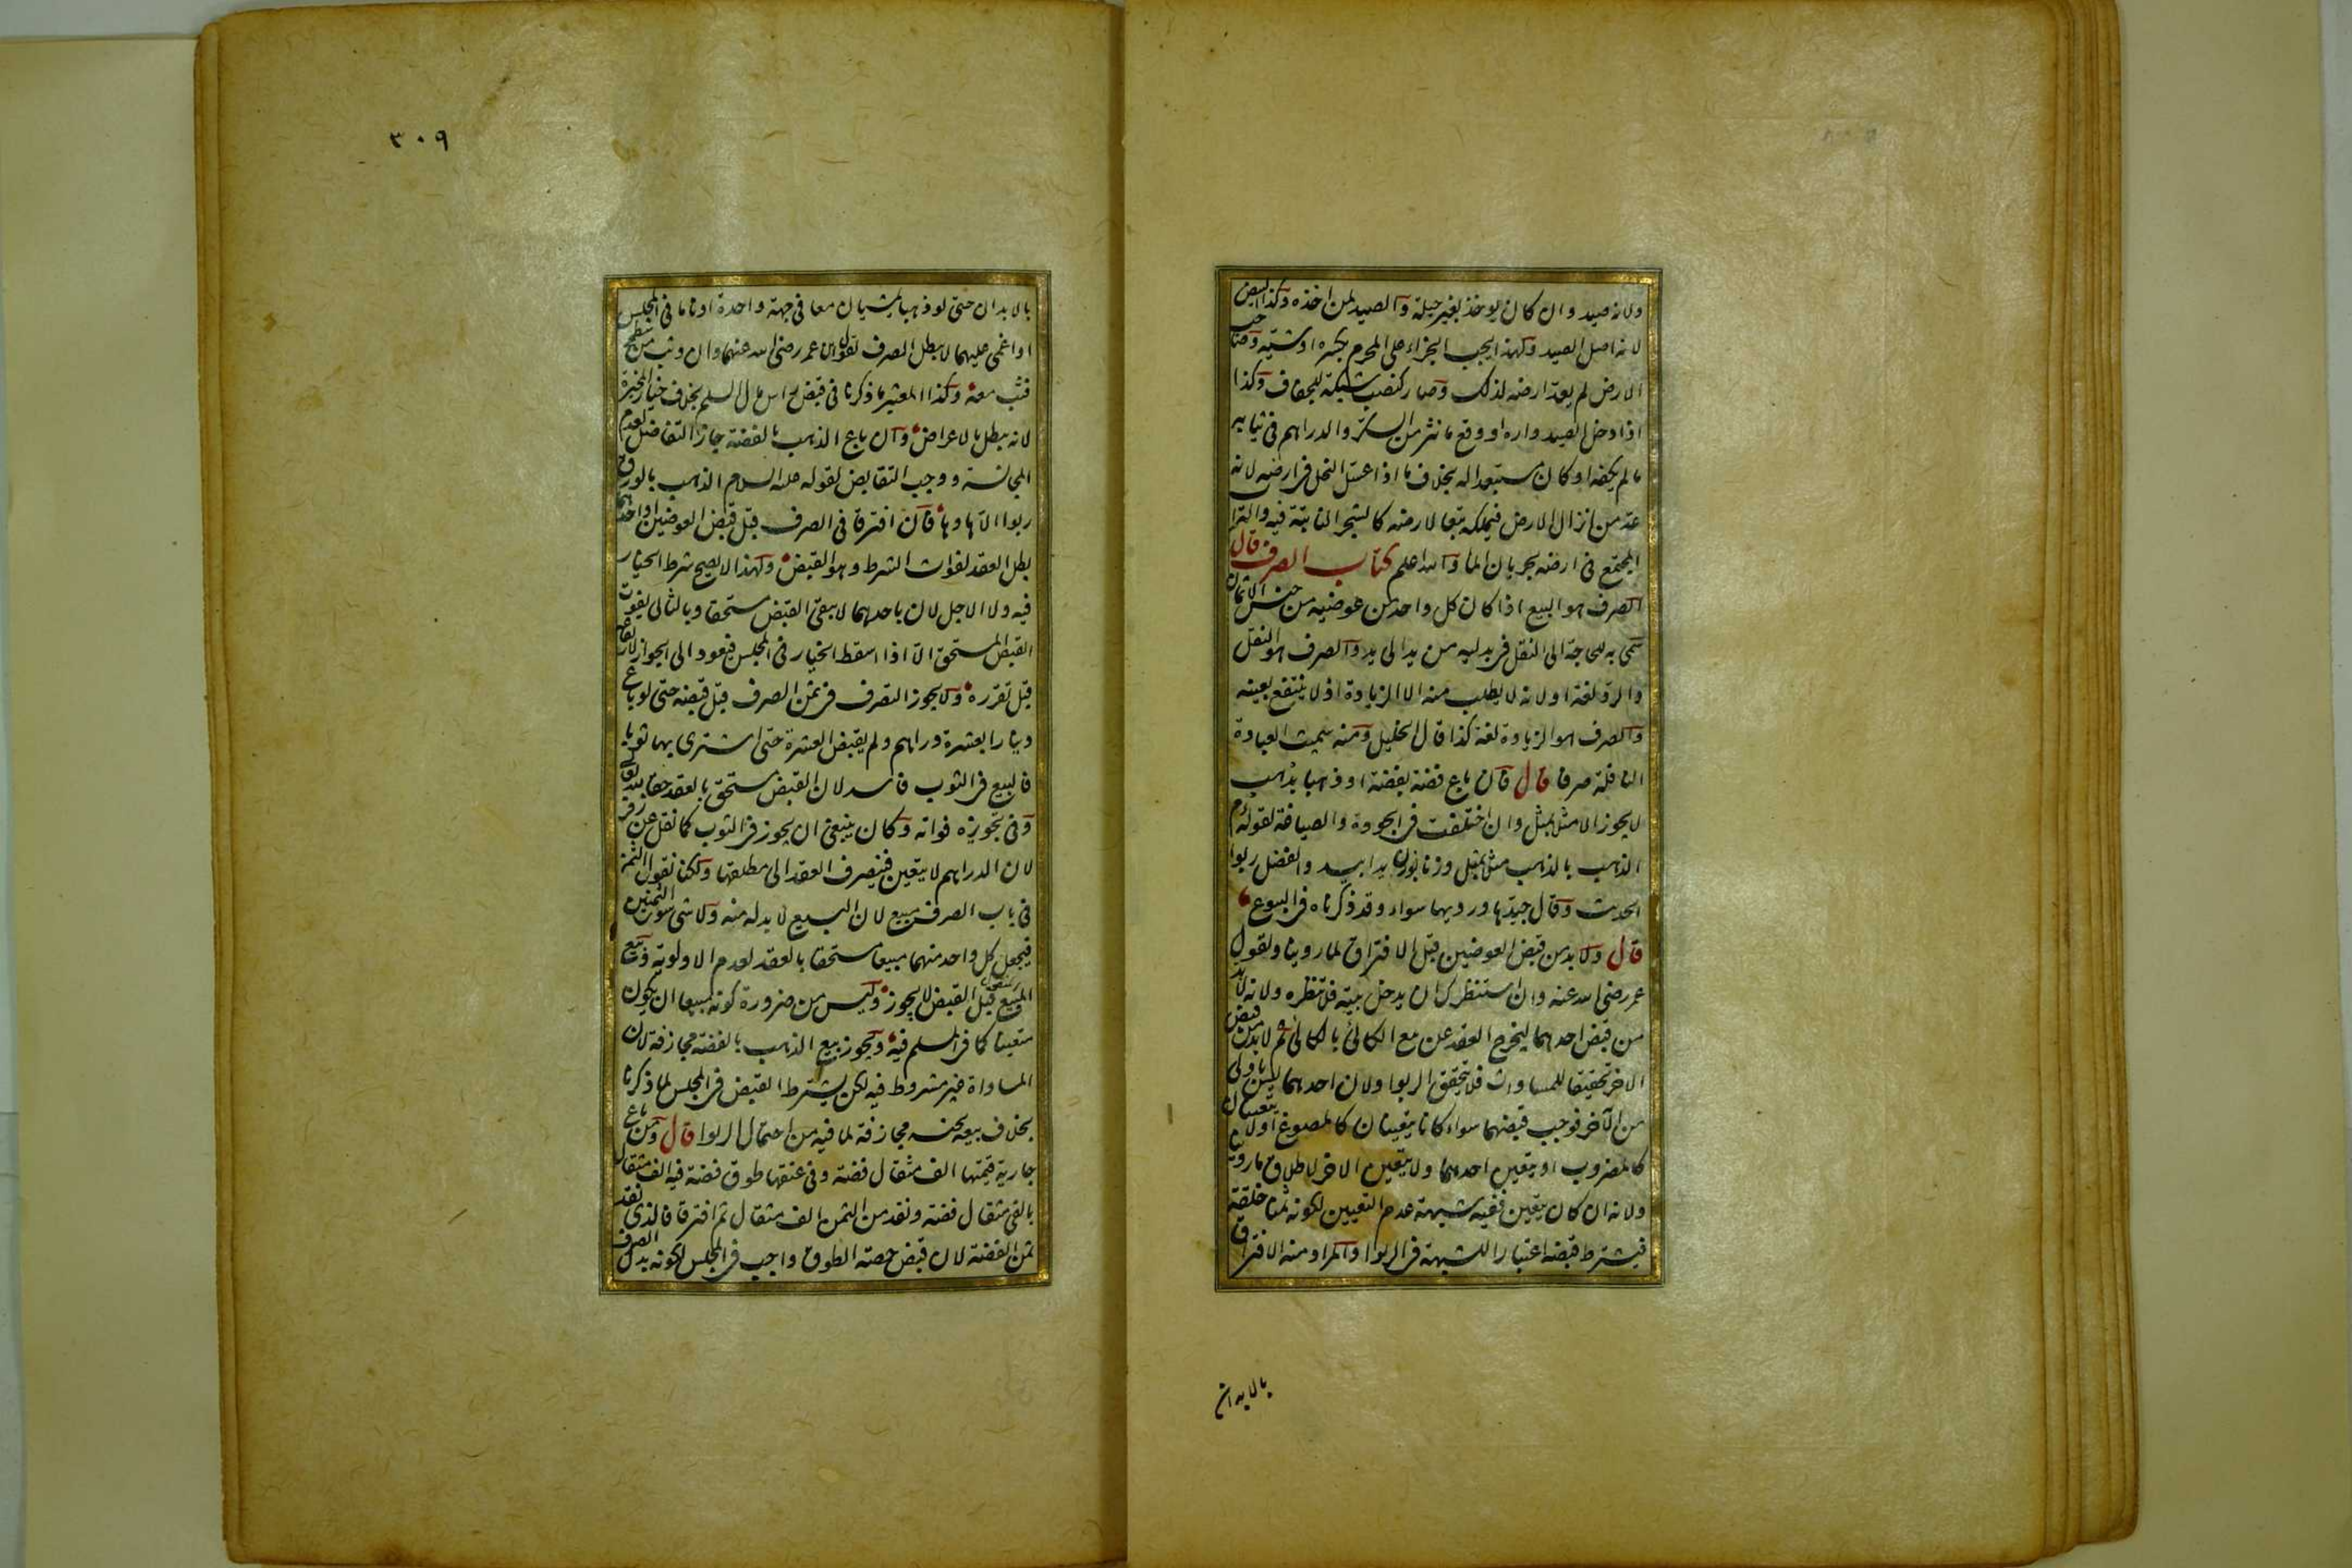 ولانه صيد وان كان يوخذ بغير حيلة والصيد لمن اخذه وكذا البيض
لانه اصل الصيد ولهذا يجب الجزاء على المحرم بكسره او شيّه وصاحب
الارض لم يعدّ ارضه لذلك وصار كنصب شبكة للجفاف وكذا
اذا دخل الصيد داره او وقع ما نثر من السكّر والدراهم فى ثيابه
ما لم يكفه او كان مستعدا له بخلاف ما اذا عسّل النحل فى ارضه لانه
عدّ من انزال الارض فيملكه تبعا لارضه كالشجر النابتة فيه والتراب
المجتمع فى ارضه بجريان الما والله اعلم كتاب الصرف قال
الصرف هو البيع اذا كان كل واحد من عوضيه من جنس الاثمان
سمّى به للحاجة الى النقل فى بدليه من يد الى يد والصرف هو النقل
والردّ لغة او لانه لا يطلب منه الا الزيادة اذ لا ينتفع بعينه
والصرف هو الزيادة لغة كذا قال الخليل ومنه سميت العبادة
النافلة صرفا قال فان باع فضة بفضة او ذهبا بذهب
لا يجوز الا مثل بمثل وان اختلفت فى الجودة والصياغة لقوله ءم
الذهب بالذهب مثل بمثل وزنا بوزن يدا بيد والفضل ربوا
الحديث وقال جيّدها ورديها سواء وقد ذكرناه فى البيوع
قال ولا بد من قبض العوضين قبل الافتراق لما روينا ولقول
عمر رضى الله عنه وان استنظرك ان يدخل بيته فلا تنظره ولانه لا بد
من قبض احدهما ليخرج العقد عن بيع الكالئ بالكالئ ثم لا بد من قبض
الاخر تحقيقا للمساواة فلا يتحقق الربوا ولان احدهما ليس باولى
من الآخر فوجب قبضهما سواء كانا يتعينان كالمصوغ او لا يتعينان
كالمضروب او يتعين احدهما ولا يتعين الاخر لاطلاق ما روينا
ولانه ان كان يتعين ففيه شبهة عدم التعيين لكونه ثمنا خلقة
فيشترط قبضه اعتبارا للشبهة فى الربوا والمراد منه الافتراق
بالابدان
٣٠٩
بالابدان حتى لو ذهبا يمشيان معا فى جهة واحدة او ناما فى المجلس
او اغمى عليهما لا يبطل الصرف لقول ابن عمر رضى الله عنهما وان وثب من سطح
فثب معه وكذا المعتبر ما ذكرنا فى قبض راس مال السلم بخلاف خيار المخيرة
لانه يبطل بالاعراض وان باع الذهب بالفضة جاز التفاضل لعدم
المجانسة ووجب التقابض لقوله عليه السلام الذهب بالورق
ربوا الّا ها وها فان افترقا فى الصرف قبل قبض العوضين او احدهما
بطل العقد لفوات الشرط وهو القبض ولهذا لا يصح شرط الخيار
فيه ولا الاجل لان باحدهما لا يبقى القبض مستحقا وبالثانى يفوت
القبض المستحق الّا اذا اسقط الخيار فى المجلس فيعود الى الجواز لارتفاعه
قبل تقرره ولا يجوز التصرف فى ثمن الصرف قبل قبضه حتى لو باع
دينارا بعشرة دراهم ولم يقبض العشرة حتى اشترى بها ثوبا
فالبيع فى الثوب فاسد لان القبض مستحق بالعقد حقا لله تعالى
وفى تجويزه فواته وكان ينبغى ان يجوز فى الثوب كما نقل عن زفر
لان الدراهم لا يتعين فينصرف العقد الى مطلقها ولكنا نقول الثمن
فى باب الصرف مبيع لان البيع لا بد له منه ولا شى سوى الثمنين
فيجعل كل واحد منهما مبيعا مستحقا بالعقد لعدم الاولوية وبيع
المبيع قبل القبض لا يجوز وليس من ضرورة كونه مبيعا ان يكون
متعينا كما فى المسلم فيه ويجوز بيع الذهب بالفضة مجازفة لان
المساواة غير مشروط فيه لكن يشترط القبض فى المجلس لما ذكرنا
بخلاف بيعه بجنسه مجازفة لما فيه من احتمال الربوا قال ومن باع
جارية قيمتها الف مثقال فضة وفى عنقها طوق فضة فيه الف مثقال
بالفى مثقال فضة ونقد من الثمن الف مثقال ثم افترقا فالذى نقد
ثمن الفضة لان قبض حصة الطوق واجب فى المجلس لكونه بدل الصرف